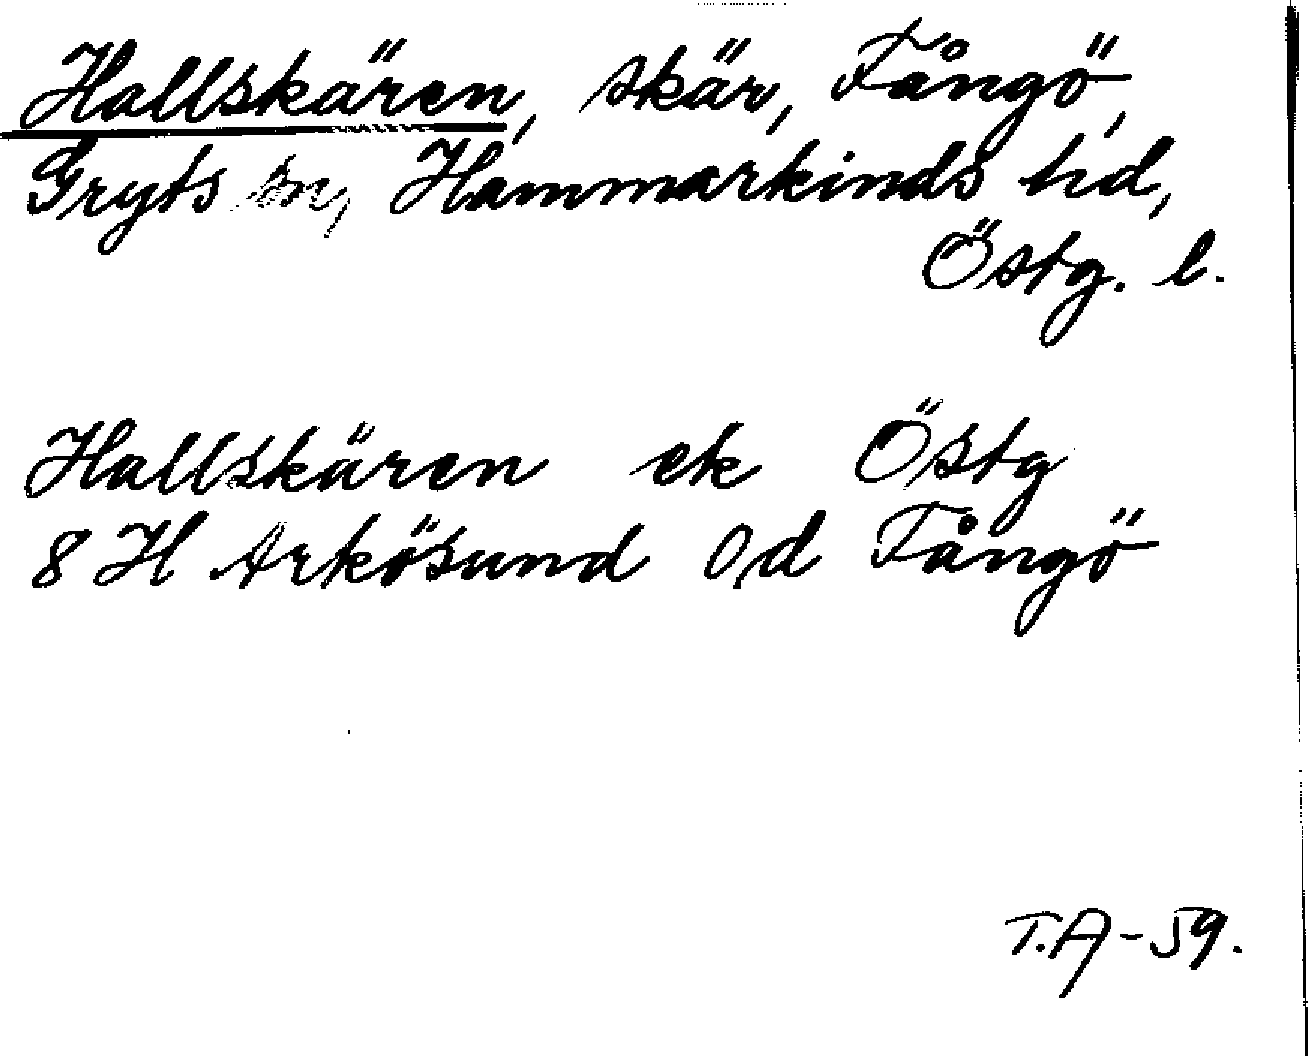 Hallskären, skär, Fångö,
Gryts sn, Hammarkinds hd,
Östg. l.
Hallskären ek Östg
8 H Arkösund Od Fångö
T.A-59.